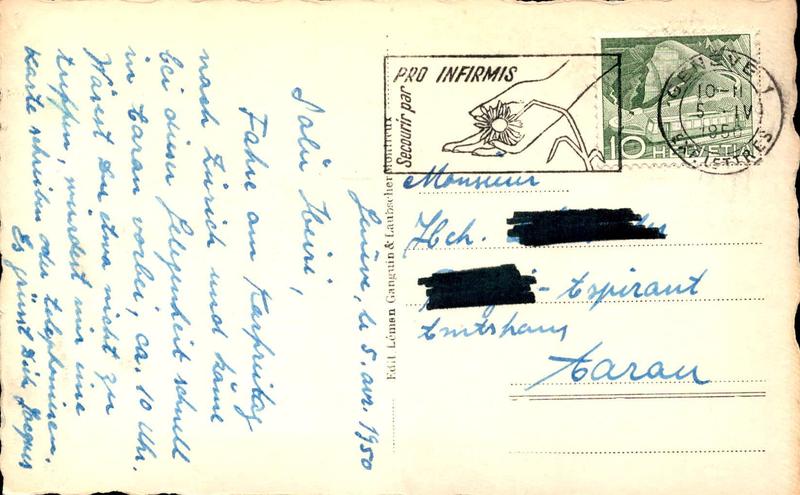 Genève, le 5. avr. 1950
Salü Heiri,
Fahre am Karfreitag
nach Zürich und käme
bei dieser Gelegenheit schnell
in Aarau vorbei, ca. 10 Uhr.
Wärest Du etwa nicht zu
treffen, würdest mir eine
Karte schreiben oder telephonieren.
Es grüsst Dich Jacques
Edit. Léman Ganguin & Laubscher Montreux
PRO INFIRMIS
Secourir par
GENÈVE 1
10-11
5-IV
1950
EXP. LETTRES
10 HELVETIA
Monsieur
Hch.
-Aspirant
Amtshaus
Aarau